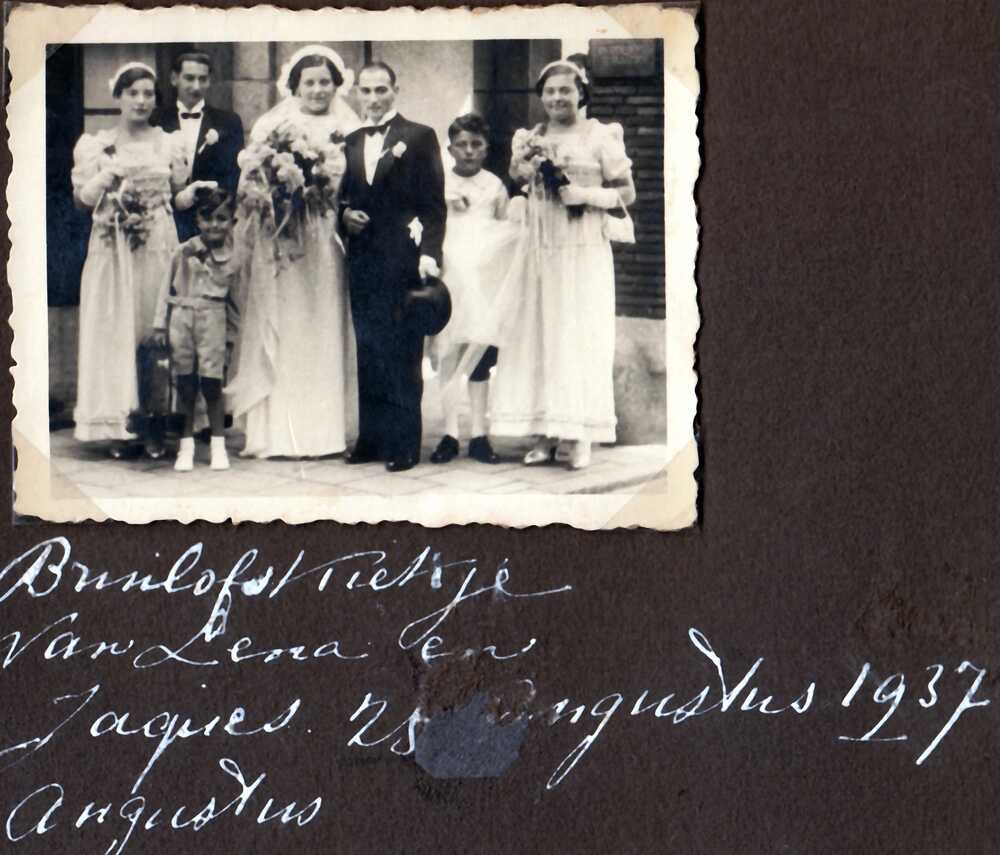 Bruilofst Kiekje
Van Lena en
Jaques. 25 Augustus 1937
Augustus